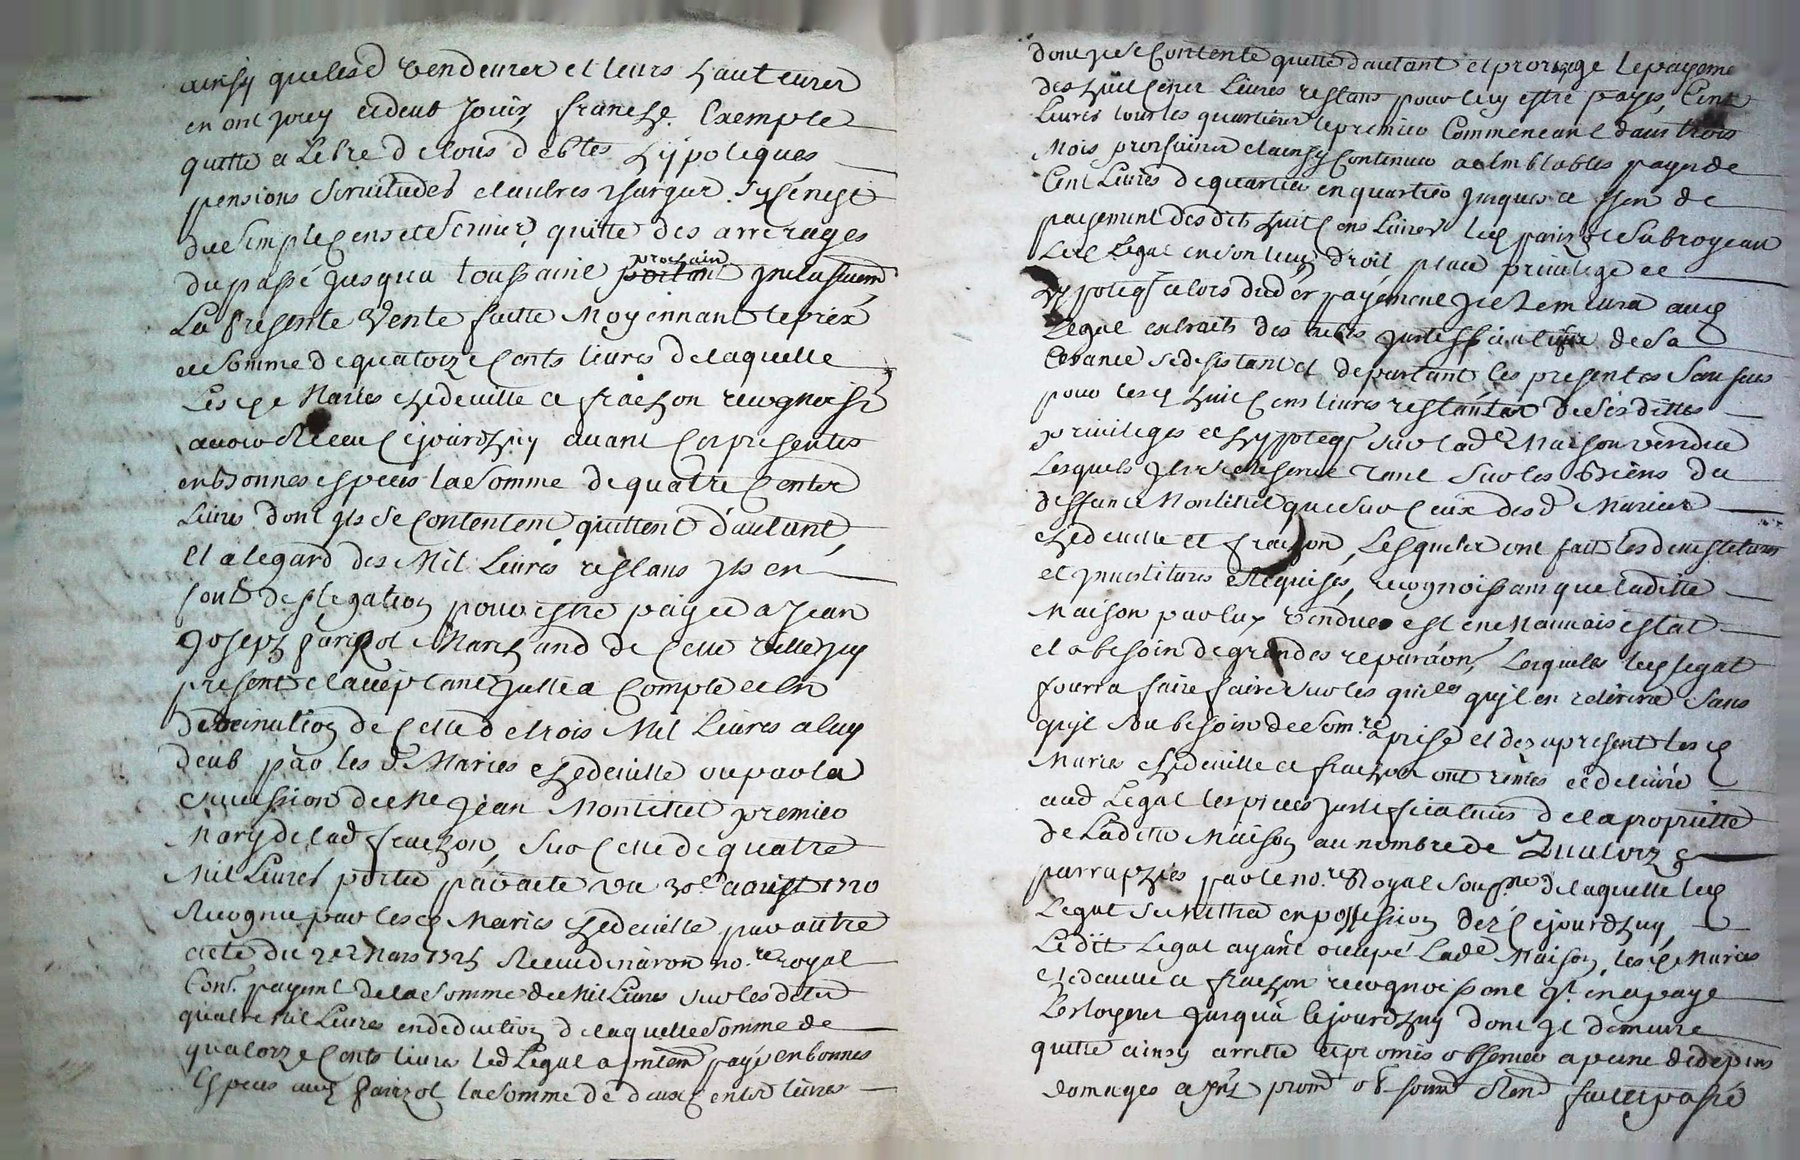 ainsy que lesd vendeures et leurs hauteures
en ont jouy et deub jouir franche Exempte
quitte et Libre de tous debtes hypoteques
pensions servitudes et autres charges sy ce n'est
du simple cens et servis, quitte des arrerages
du passé jusqu'a toussaint prochain inclusivem
La presente vente faitte moyennant le priex
et somme de quatorze cents livres de laquelle
Les de Maries chedeville et frachon recognoiss
avoir Receu cejourdhuy avant ces presentes
en bonnes especes la somme de quatre centz
Livres dont ils se contentent quittent d'autant
Et a legard des Mil Livres restans ils en
font deslegation pour estre payee a Jean
Joseph parizot Marchand de cette ville icy
present et acceptant juste a compte et en
deduction de celle de trois Mil Livres a luy
deub par les d Maries chedeville ou par la
succession de Me jean Montitiel premier
Mary de lad frachon, sur celle de quatre
Mil Livres portee par acte du 30e aoust 1720
Recognu par lesd Maries chedeville par autre
acte du 2e Mars 1725 Receu dinaron no.re royal
Cont. payemt de la somme de Mil Livres sur les dittes
quatre Mil Livres en deduction de laquelle somme de
quatorze cents livres led Legat a presentem payé en bonnes
Especes aud parizot la somme de deux centz livres
dont il se contente quitte d'autant et proroge le payeme
des huit cens Livres restans pour luy estre payés, Cent
Livres tous les quartiers le premier commencant d'aus trois
Mois prochains et ainsy continuer a semblables payede
Cent Livres de quartier en quartier jusques a fin de
payement des dits huit cens Livres led parizot subrogeant
Led Legat en son lieu droit, place privilege et
hypoteq et lors dud der payement il remettra aud
Legat extraits des actes justifficatifs de sa
Creance se desistant et departant les presentes sauf
pour lesd huit cens livres restantes de ses dittes
privileges et hypoteq sur lad.e Maison vendue
Lesquels il se reserve tant sur les Biens du
deffunct Montitiel que sur ceux desd Maries
chedeville et frachon, Lesquels ont fait les devestitures
et investitures Requises, recognoissans que laditte
Maison par eux vendue est en Mauvais estat
et a besoin de grandes reparaons, Lesquelles led legat
pourra faire faire sur les qu'il en retirera sans
qu'il soit besoin de som.re aprise et dez apresent les d
Maries chedeville et frachon ont remis et delivré
aud Legat les pieces justifficatives de la proprietté
de Laditte Maison au nombre de Quatorze
parraphées par le no.re Royal soub.ne de laquelle led
Legat se mettra en possession dez cejourdhuy
Ledit Legat ayant occupé Lad.e Maison, les d Maries
chedeville et frachon recognoissent q.l en a payé
Les loyers jusqu'à cejourdhuy dont il demeure
quitte ainsy arretté et promis observer a peine de depens
domages et jnt prom obs soum Ren fait et passé